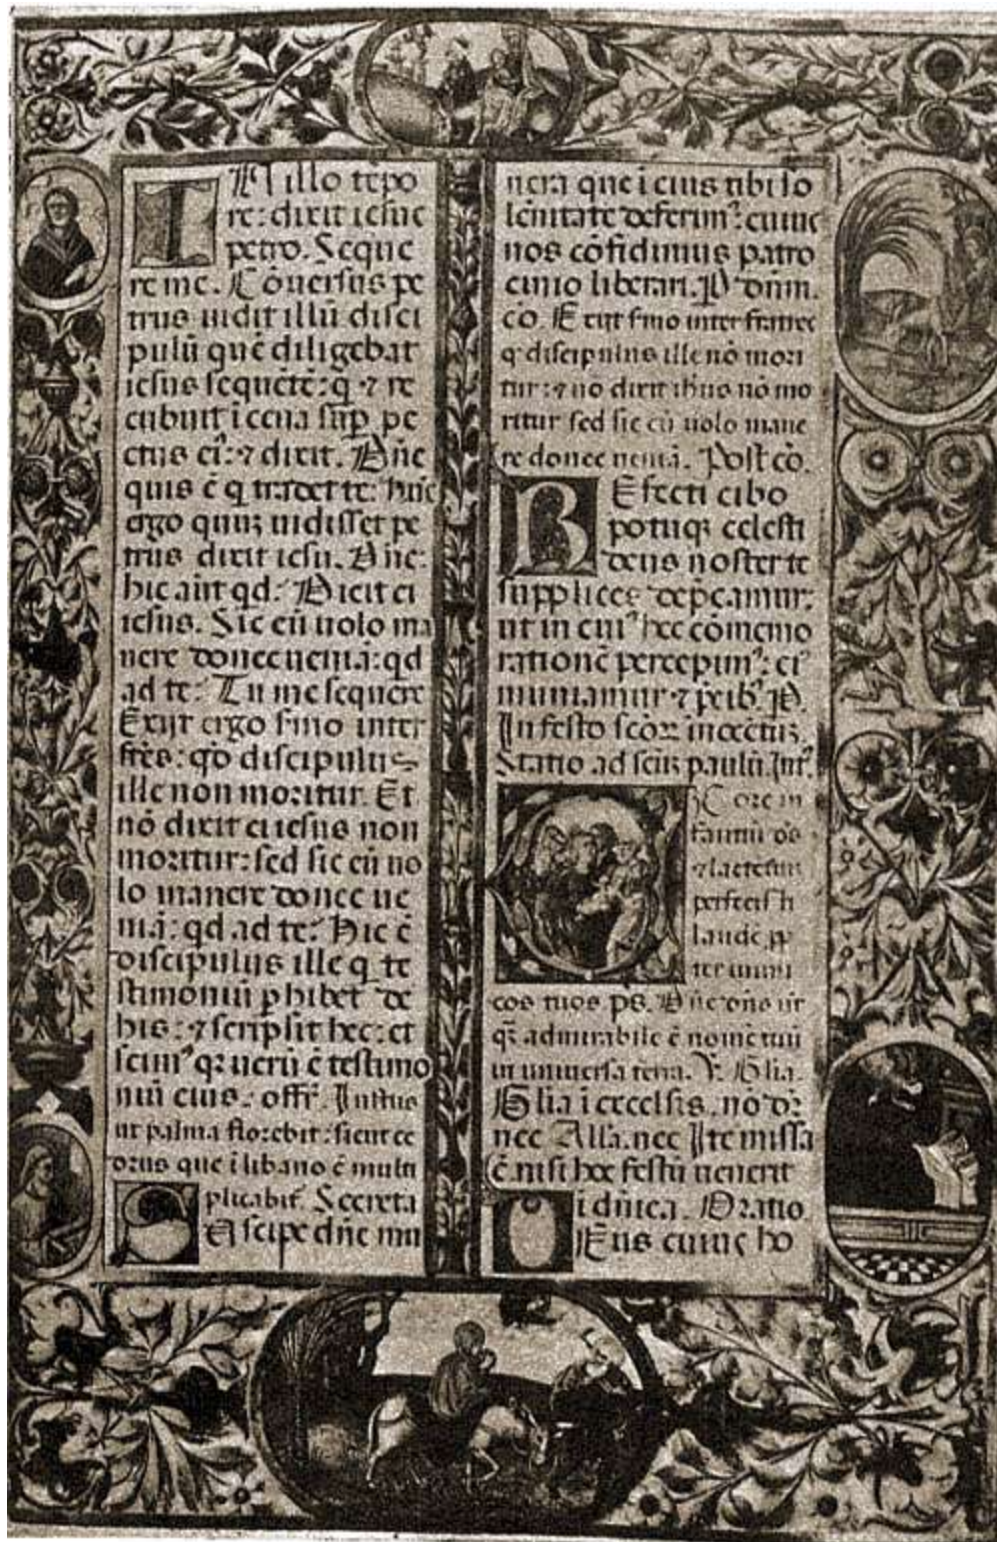 IN illo tẽpo
re: dixit iesus
petro. Seque
re me. Cõuersus pe
trus uidit illũ disci
pulũ quẽ diligebat
iesus sequẽtẽ: q ⁊ re
cubuit ĩ cena sup pe
ctus ei᾽: ⁊ dixit. Dñe
quis ẽ q tradet te: hũc
ergo quuȝ uidisset pe
trus dixit iesu. Dñe:
hic aũt qd: Dicit ei
iesus. Sic eũ uolo ma
nere donec ueniã: qd
ad te: Tu me sequere
Exijt ergo smo inter
fr̃es: qð discipulus
ille non moritur. Et
nõ dixit ei iesus non
moritur: sed sic eũ uo
lo manere donec ue
niã: qd ad te: Hic ẽ
discipulus ille q te
stimoniũ phibet de
his: ⁊ scripsit hec: et
scim᾽ qꝛ uerũ ẽ testimo
niũ eius. offr̃. Justus
ut palma florebit: sicut ce
drus que ĩ libano ẽ multi
plicabit᾽ Secreta
SUscipe dñe mu
nera que ĩ eius tibi so
lẽnitate deferim᾽: cuius
nos cõfidimus patro
cinio liberari. P dñm.
cõ. Exijt smo inter fratres
q discipulus ille nõ mori
tur: ⁊ nõ dixit ihũs nõ mo
ritur sed sic eũ uolo mane
re donec ueniã. Post cõ.
REfecti cibo
potuqȝ celesti
deus noster te
supplices dep̃camur:
ut in cui᾽ hec cõmemo
rationẽ percepim᾽: ei᾽
muniamur ⁊ p̃cib᾽. P.
In festo scõꝝ inocẽtiũ.
Statio ad scm̃ paulũ. Int᾽.
EX ore in
fantiũ ds̃
⁊ lactentiũ
perfecisti
laudẽ p
ter inimi
cos tuos ps. Dñe dñs nr̃
qȝ admirabile ẽ nomẽ tuũ
in uniuersa terra. ℣. Glia.
Glia ĩ excelsis. nõ dr̃
nec Alla. nec Ite missa
ẽ. nisi hec festũ uenerit
ĩ dñica. Oratio.
DEus cuius ho